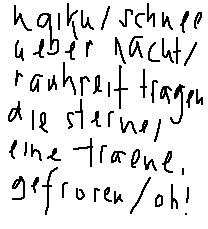 haiku/schnee
ueber nacht/
rauhreif tragen
die sterne/
eine traene,
gefroren/oh!